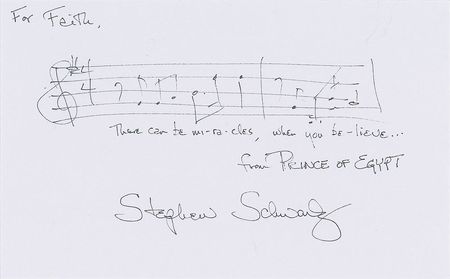 For Faith,
4
4
There can be mi-ra-cles, when you be-lieve...
from PRINCE OF EGYPT
Stephen Schwartz